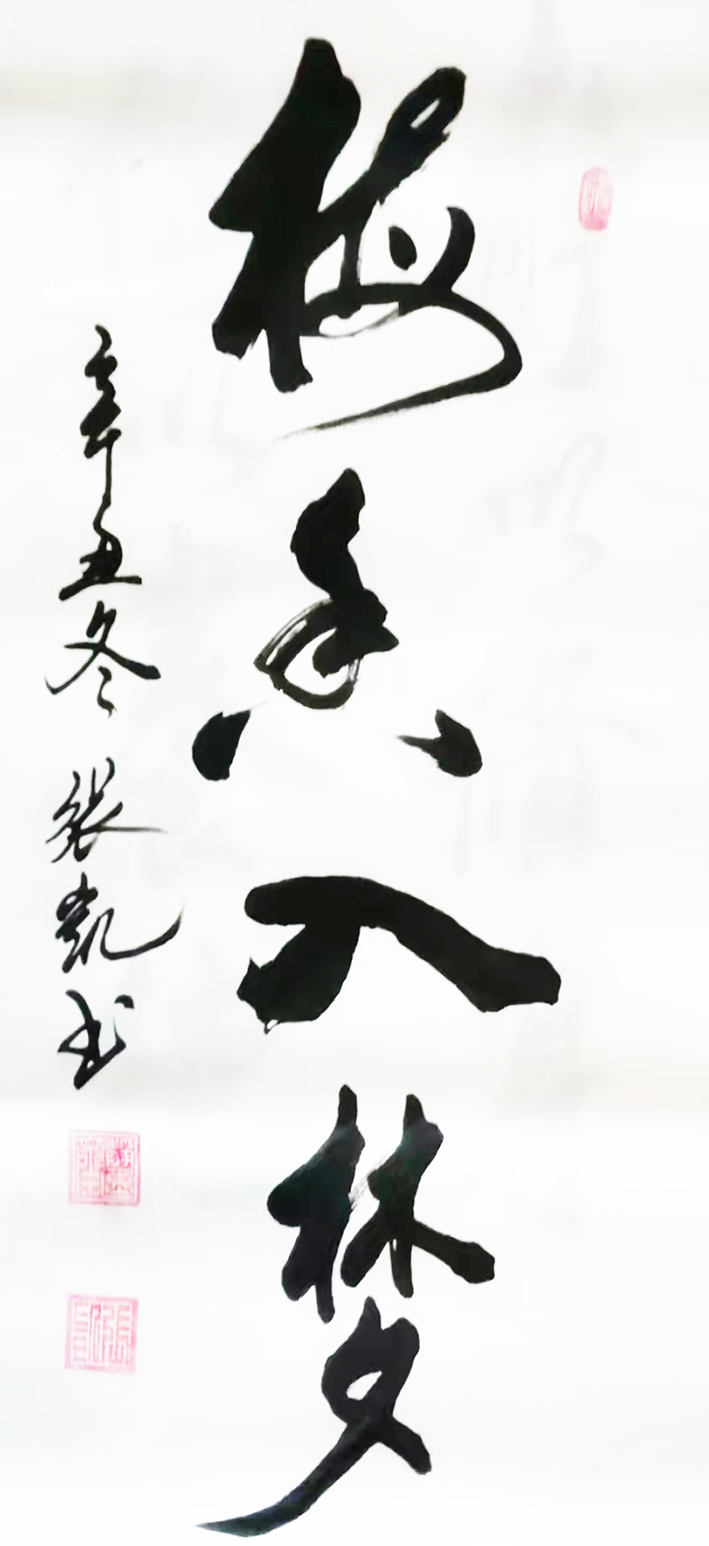 梅香入梦
辛丑冬 张凯书